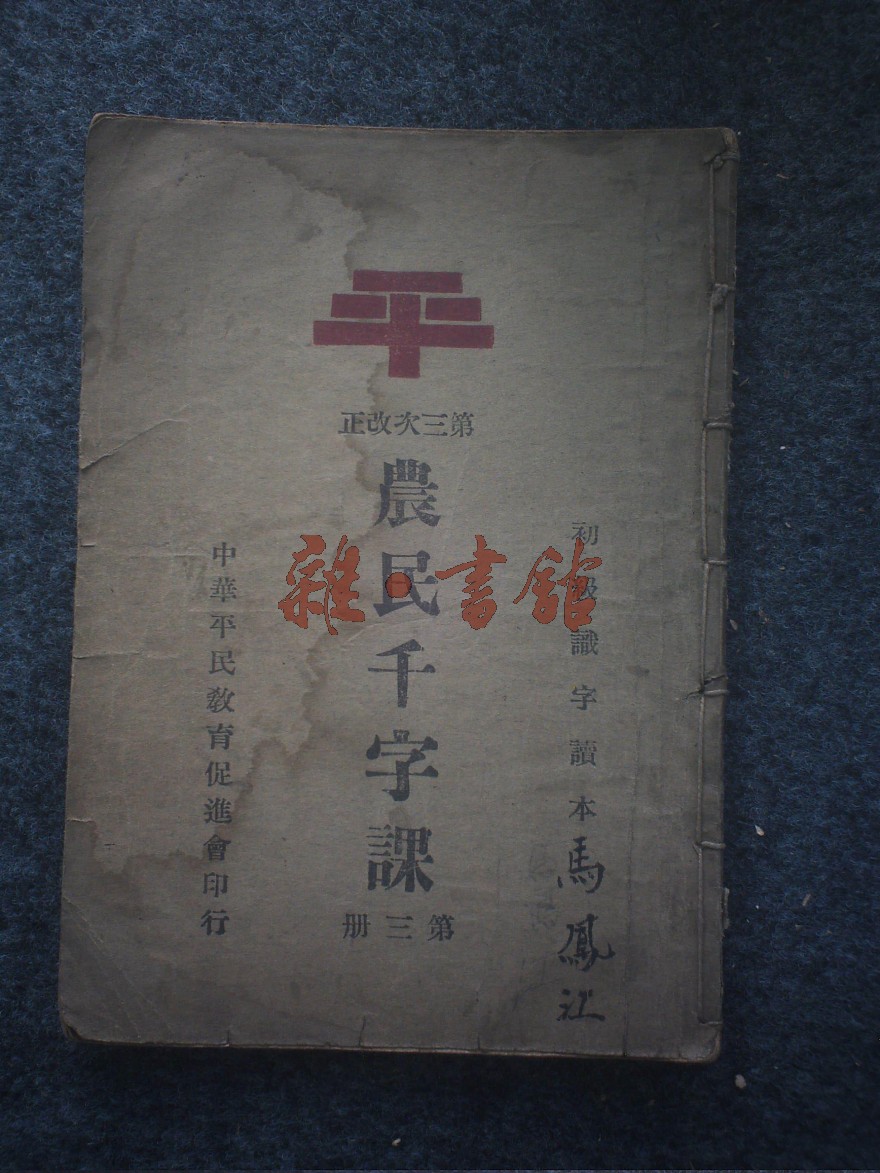 平
第三次改正
農民千字課
第三册
初級識字讀本
馬鳳江
中華平民敎育促進會印行
雜·書館